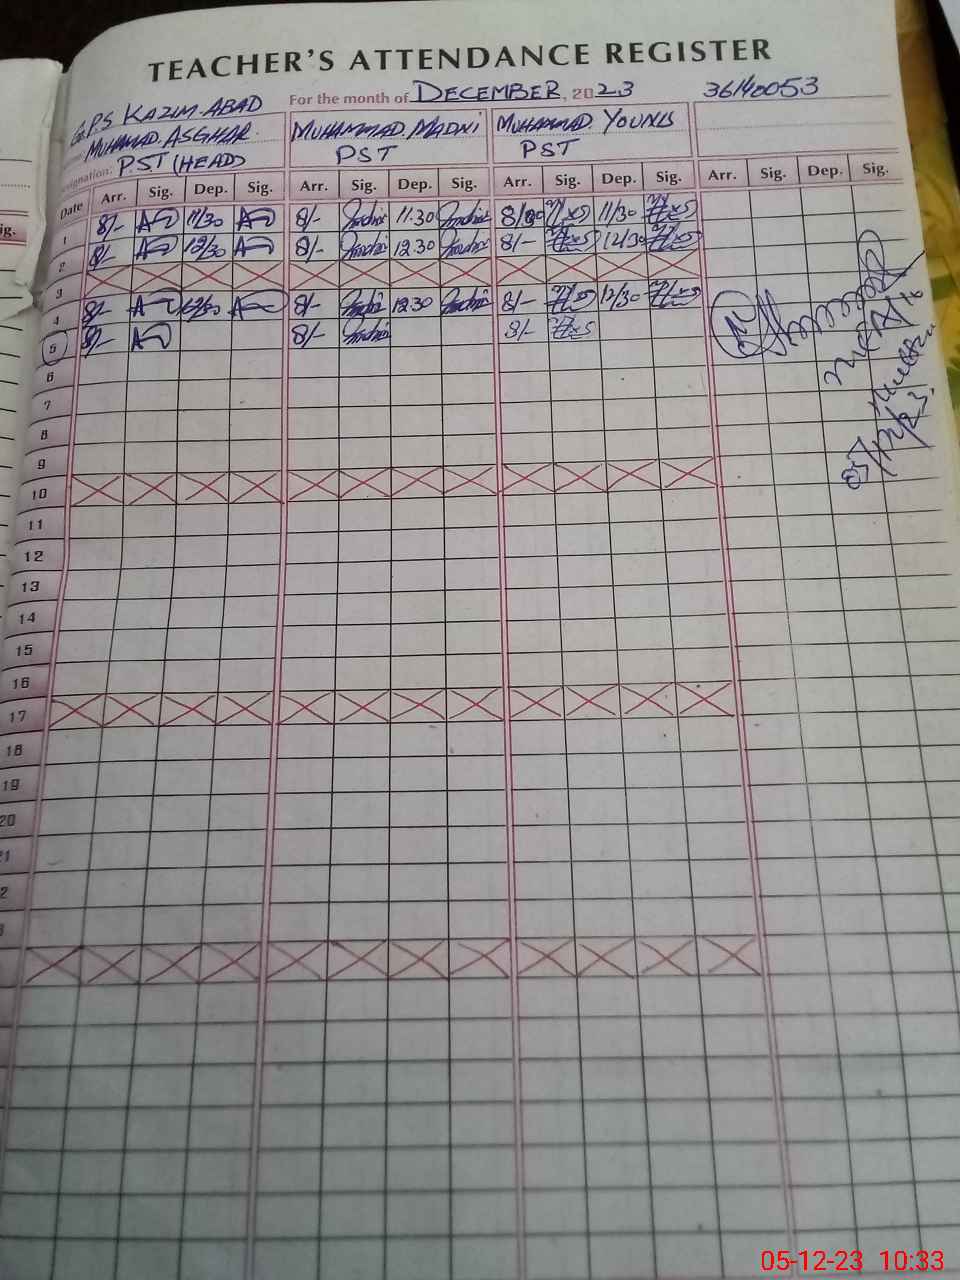 TEACHER'S ATTENDANCE REGISTER
G.P.S KAZIM.ABAD For the month of DECEMBER, 2023 36140053
MUHAMAD.ASGHAR. MUHAMMAD.MADNI MUHAMMAD.YOUNUS
Designation: P.S.T (HEAD) PST PST
Date Arr. Sig. Dep. Sig. Arr. Sig. Dep. Sig. Arr. Sig. Dep. Sig. Arr. Sig. Dep. Sig.
1 8/- 11/30 8/- 11.30 11/30
2 8/- 12/30 8/- 12.30 8/- 12/30
3
4 8/- 12/30 8/- 12.30 8/- 12/30
5 8/- 8/- 8/-
6
7
8
9
10
11
12
13
14
15
16
17
18
19
20
21
ig.
05-12-23 10:33